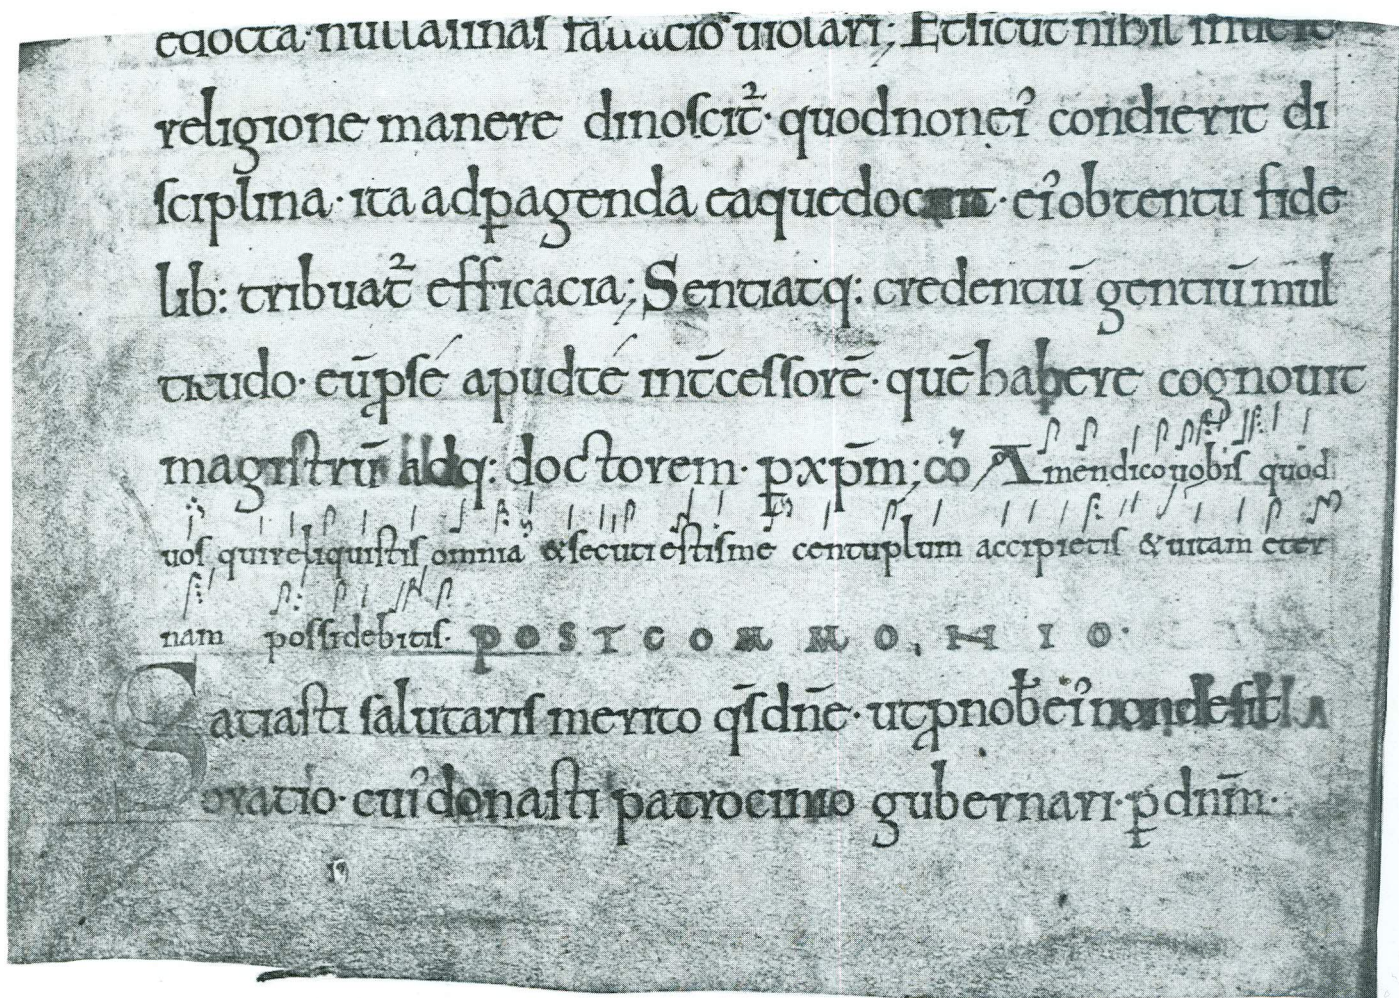 edocta· nulla sinas fallacio uiolari; Et sicut nihil in
religione manere dinoscit᷑· quod non ei᷒ condierit di
sciplina· ita ad p̱agenda ea que docuit· ei᷒ obtentu fide
lib: tribuat᷑ efficacia; Sentiatq: credentiū gentiū mul
titudo· eū p̱ sé apud té int̄cessorē· quē habere cognouit
magistrū adq: doctorem· p̱ xp̄m; cō Amen dico uobis quod
uos qui reliquistis omnia & secuti estis me centuplum accipietis & uitam eter
nam possidebitis· POSTCOMMONIO·
Satiasti salutaris merito qs̄ dn̄e· ut p̱ nob̄ ei᷒ non desit la
oratio· cui᷒ donasti patrocinio gubernari· p̱ dnm̄·